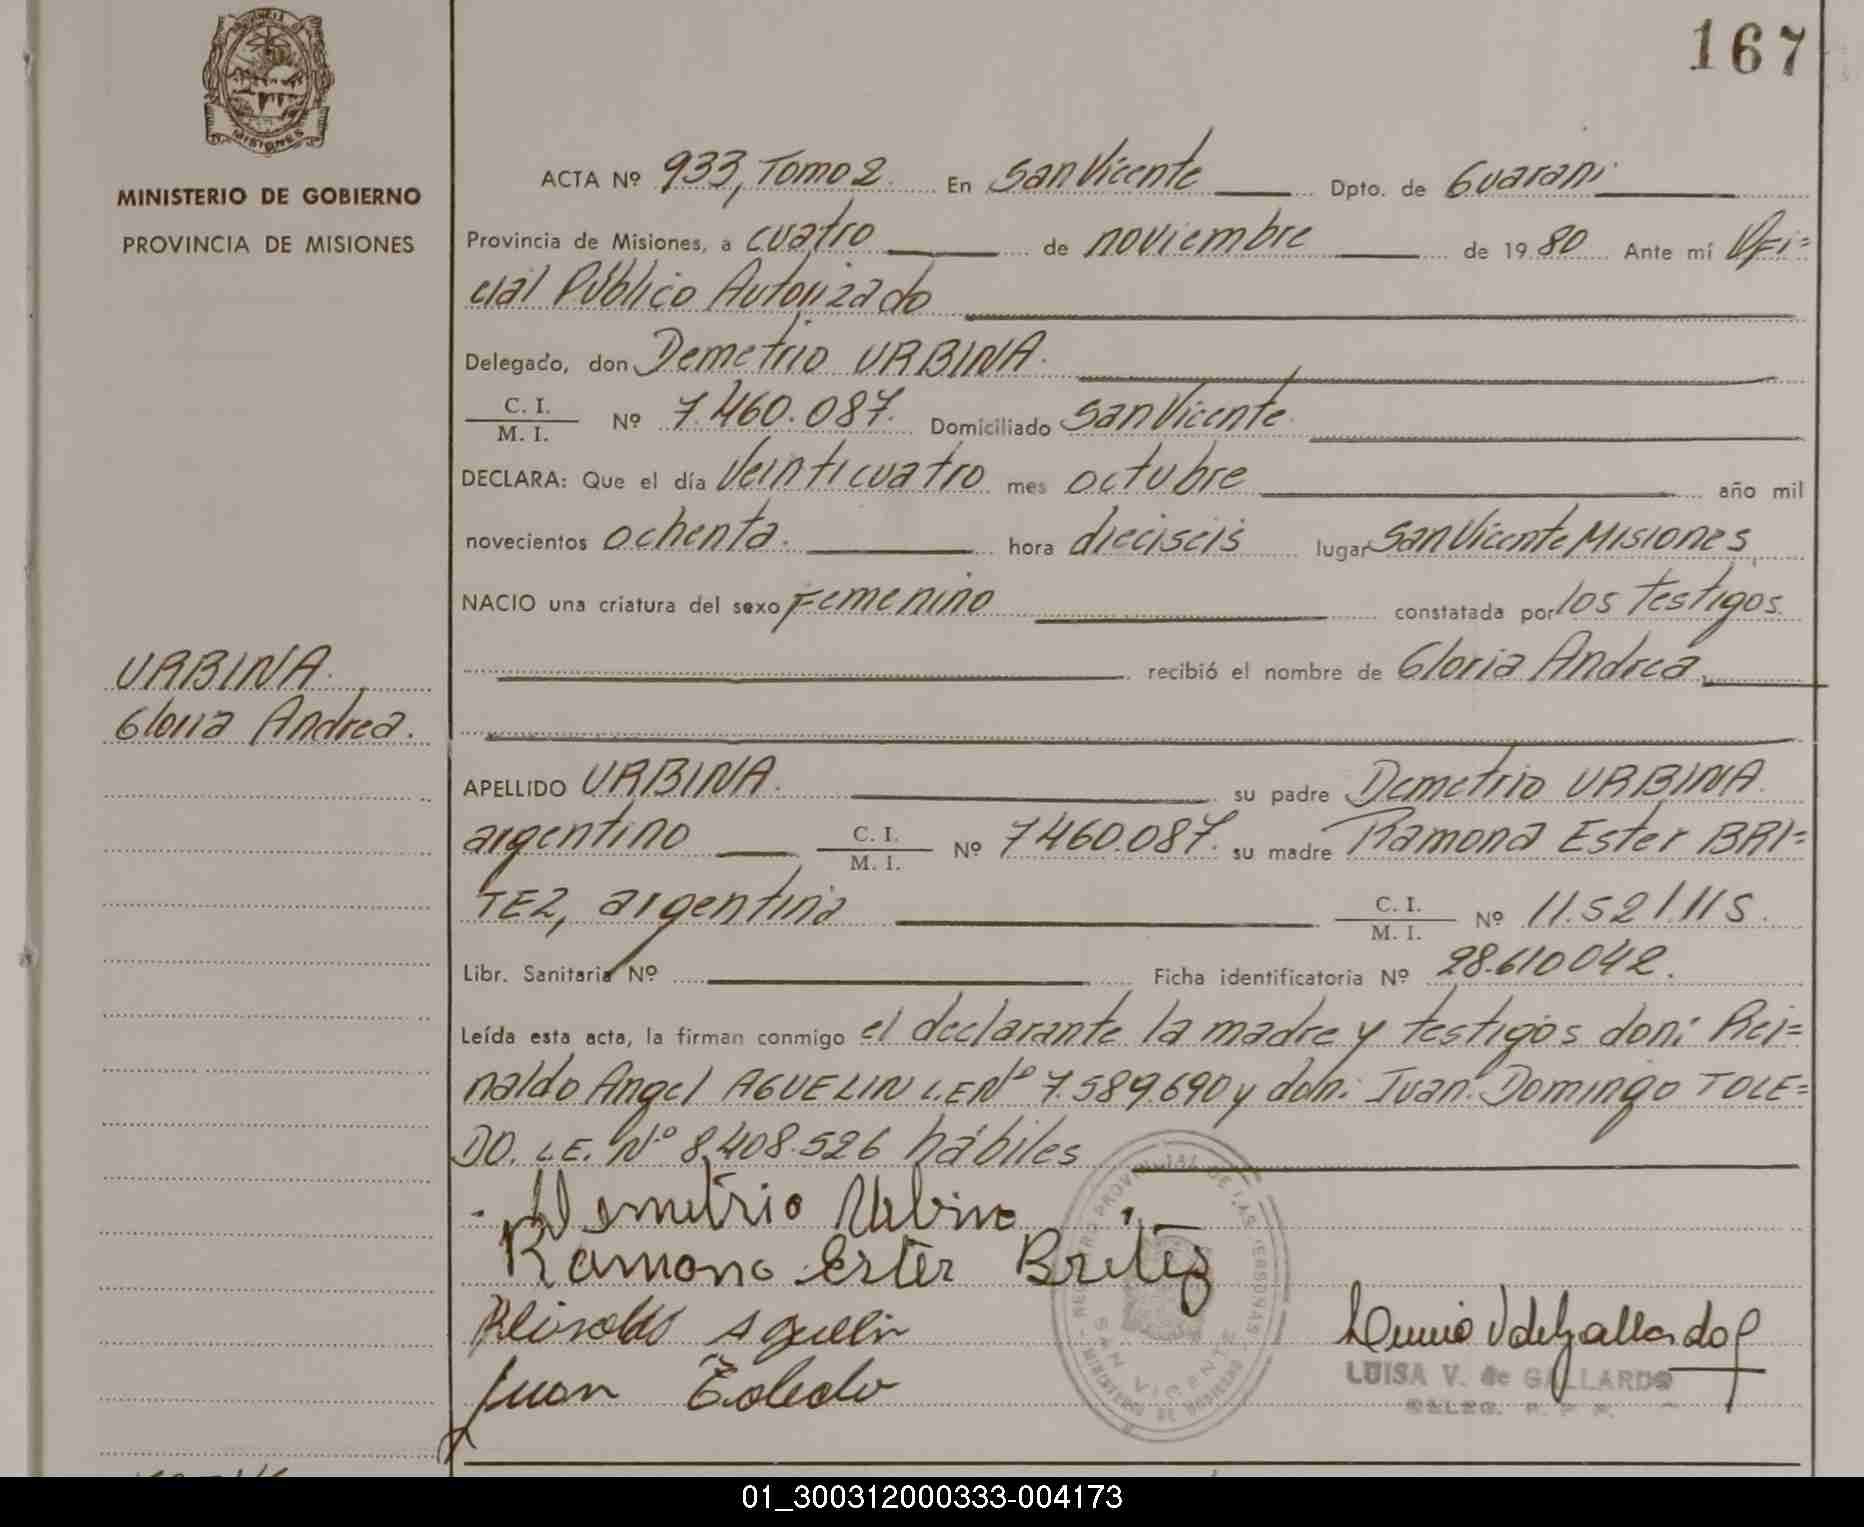 167
MISIONES
MINISTERIO DE GOBIERNO
PROVINCIA DE MISIONES
ACTA Nº 933, Tomo 2. En San Vicente Dpto. de Guarani
Provincia de Misiones, a cuatro de noviembre de 1980 Ante mí Ofi=
cial Público Autorizado
Delegado, don Demetrio URBINA.
C. I.
M. I. Nº 7.460.087. Domiciliado San Vicente.
DECLARA: Que el día Veinticuatro mes octubre año mil
novecientos ochenta. hora dieciseis lugar San Vicente Misiones,
NACIO una criatura del sexo Femenino constatada por los testigos.
recibió el nombre de Gloria Andrea.
URBINA.
Gloria Andrea.
APELLIDO URBINA. su padre Demetrio URBINA.
argentino C. I.
M. I. Nº 7460.087. su madre Ramona Ester BRI=
TEZ, argentina C. I.
M. I. Nº 11.521.115.
Libr. Sanitaria Nº Ficha identificatoria Nº 28.610042.
Leída esta acta, la firman conmigo el declarante la madre y testigos don: Rei=
naldo Angel AGUELIN L.E Nº 7.589.690 y don: Juan Domingo TOLE=
DO. L.E. Nº 8.408.526 hábiles
Demetrio Urbina
Ramona Ester Britez
Reinaldo Aguelin
Juan Toledo
REGISTRO PROVINCIAL DE LAS PERSONAS
SAN VICENTE
MINISTERIO DE GOBIERNO
LUISA V. de GALLARDO
DELEG. R. P. P.
01_300312000333-004173